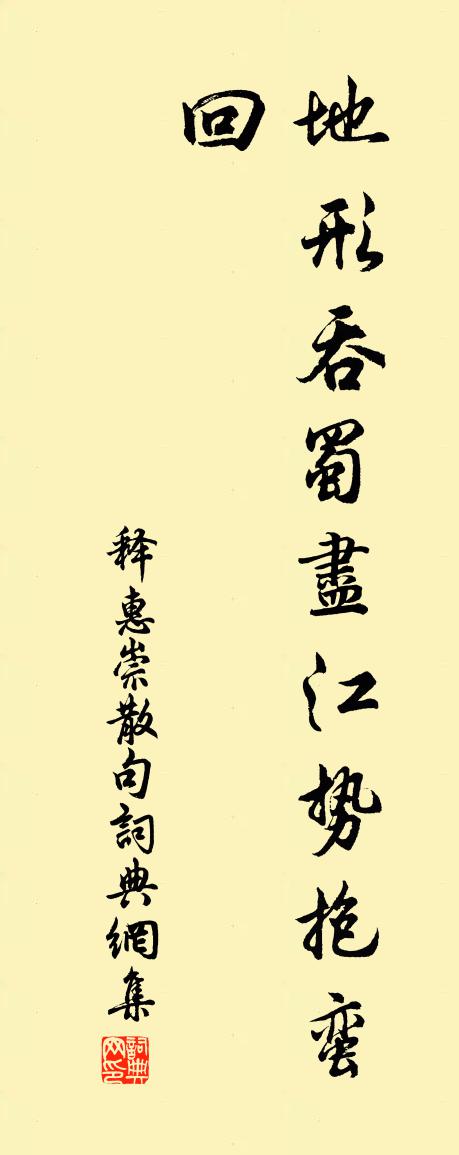 地形吞蜀盡江势抱蛮
回
释惠崇散句詞典網集
詞典网印